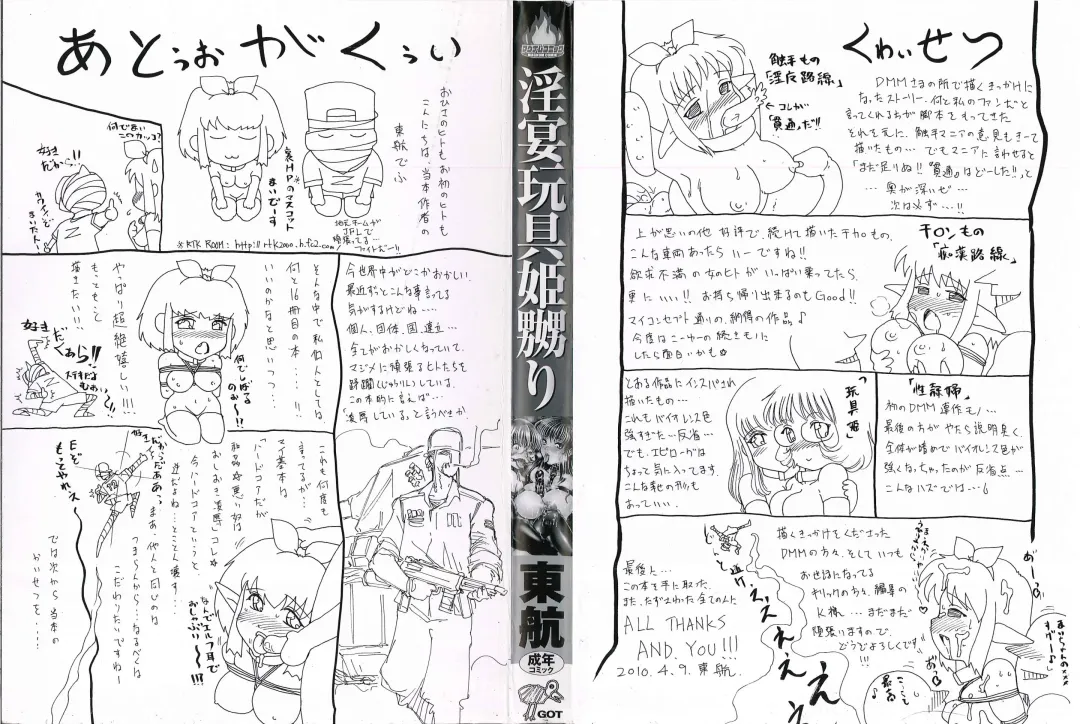 くわいせつ
触手もの
「淫辱路線」
←コレが
「貫通」だ!!
DMMさまの所で描くきっかけに
なったストーリー。何と私のファンだと
言ってくれる方が脚本をもってきた
それを元に、触手マニアの意見もきいて
描いたもの… でもマニアに言わせると
「まだ足りぬ!!『貫通』はどーした!!」と
…奥が深いぜ…
次は必ず…!!
チカンもの
「痴漢路線」
上が思いの他 好評で、続けて描いたチカンもの。
こんな車両あったら いーですね!!
欲求不満の女のヒトが いっぱい乗ってたら、
更に いい!! お持ち帰り出来るのも Good!!
マイコンセプト通りの、納得の作品♪
今度は ニーサーの続きもに
したら面白いかも☆
「玩具姫」
とある作品にインスパされ
描いたもの…
これもバイオレンス色
強すぎた…反省…
でも、エピローグは
ちょっと気に入ってます。
こんな幸せの形も
あっていい。
初のDMM連作モノ…
最後の方がやたら説明臭く、
全体が暗めでバイオレンス色が
強くなっちゃったのが反省点…
こんなハズでは…
描くきっかけをくださった
DMMの方々、そしていつも
お世話になってる
ギリックの方々、編集の
K様、…まだまだ
頑張りますので、
どうぞよろしくです!!
最後に…
この本を手に取った
また、たずさわった全ての人に
ALL THANKS
AND YOU!!!
2010.4.9.東航
淫宴玩具姫嬲り
東航
成年
コミック
GOT
あとぅおがくぅい
おひさのヒトも、お初のヒトも
こんにちは、当本作者の
東航でふ
裏HPのマスコット
まいでーす
地元チームが
JFLで
頑張ってる…
ファイトだー!!
※RTK ROOM: http://rtk2000.h.fc2.com/
何でまい
このカッコ?
好き
だから…!!
今世界中がどこかおかしい。
最近ずっとこんな事言ってる
気がするけどね…
個人、団体、国、連立…
全てがおかしくなっていて、
マジメに頑張るヒトたちを
蹂躙(じゅうりん)している。
この本的に言えば…
「凌辱している」と言うべきか
そんな中で私個人としては
何と16冊目の本…!!
いいのかなと思いつつ…
やっぱり超絶嬉しい!!!
もっともっと
描きたい!!!
何でしばってる
のぉ〜!?
好き
だくぁら!!
これも何度も
言ってるが…
マイ基本は
「ハードコア」だが
和姦も好き
おしおき凌辱コレ☆
今、ハードコアというと、
逆だよね…とことん壊す…
まあ、他人と同じのは
つまらんから…なるべくは
こだわりたいですねー
なんでエルフ耳で
おしゃぶりぃ〜!!?
もっとやれぇ
では次から 当本の
かいせつを…